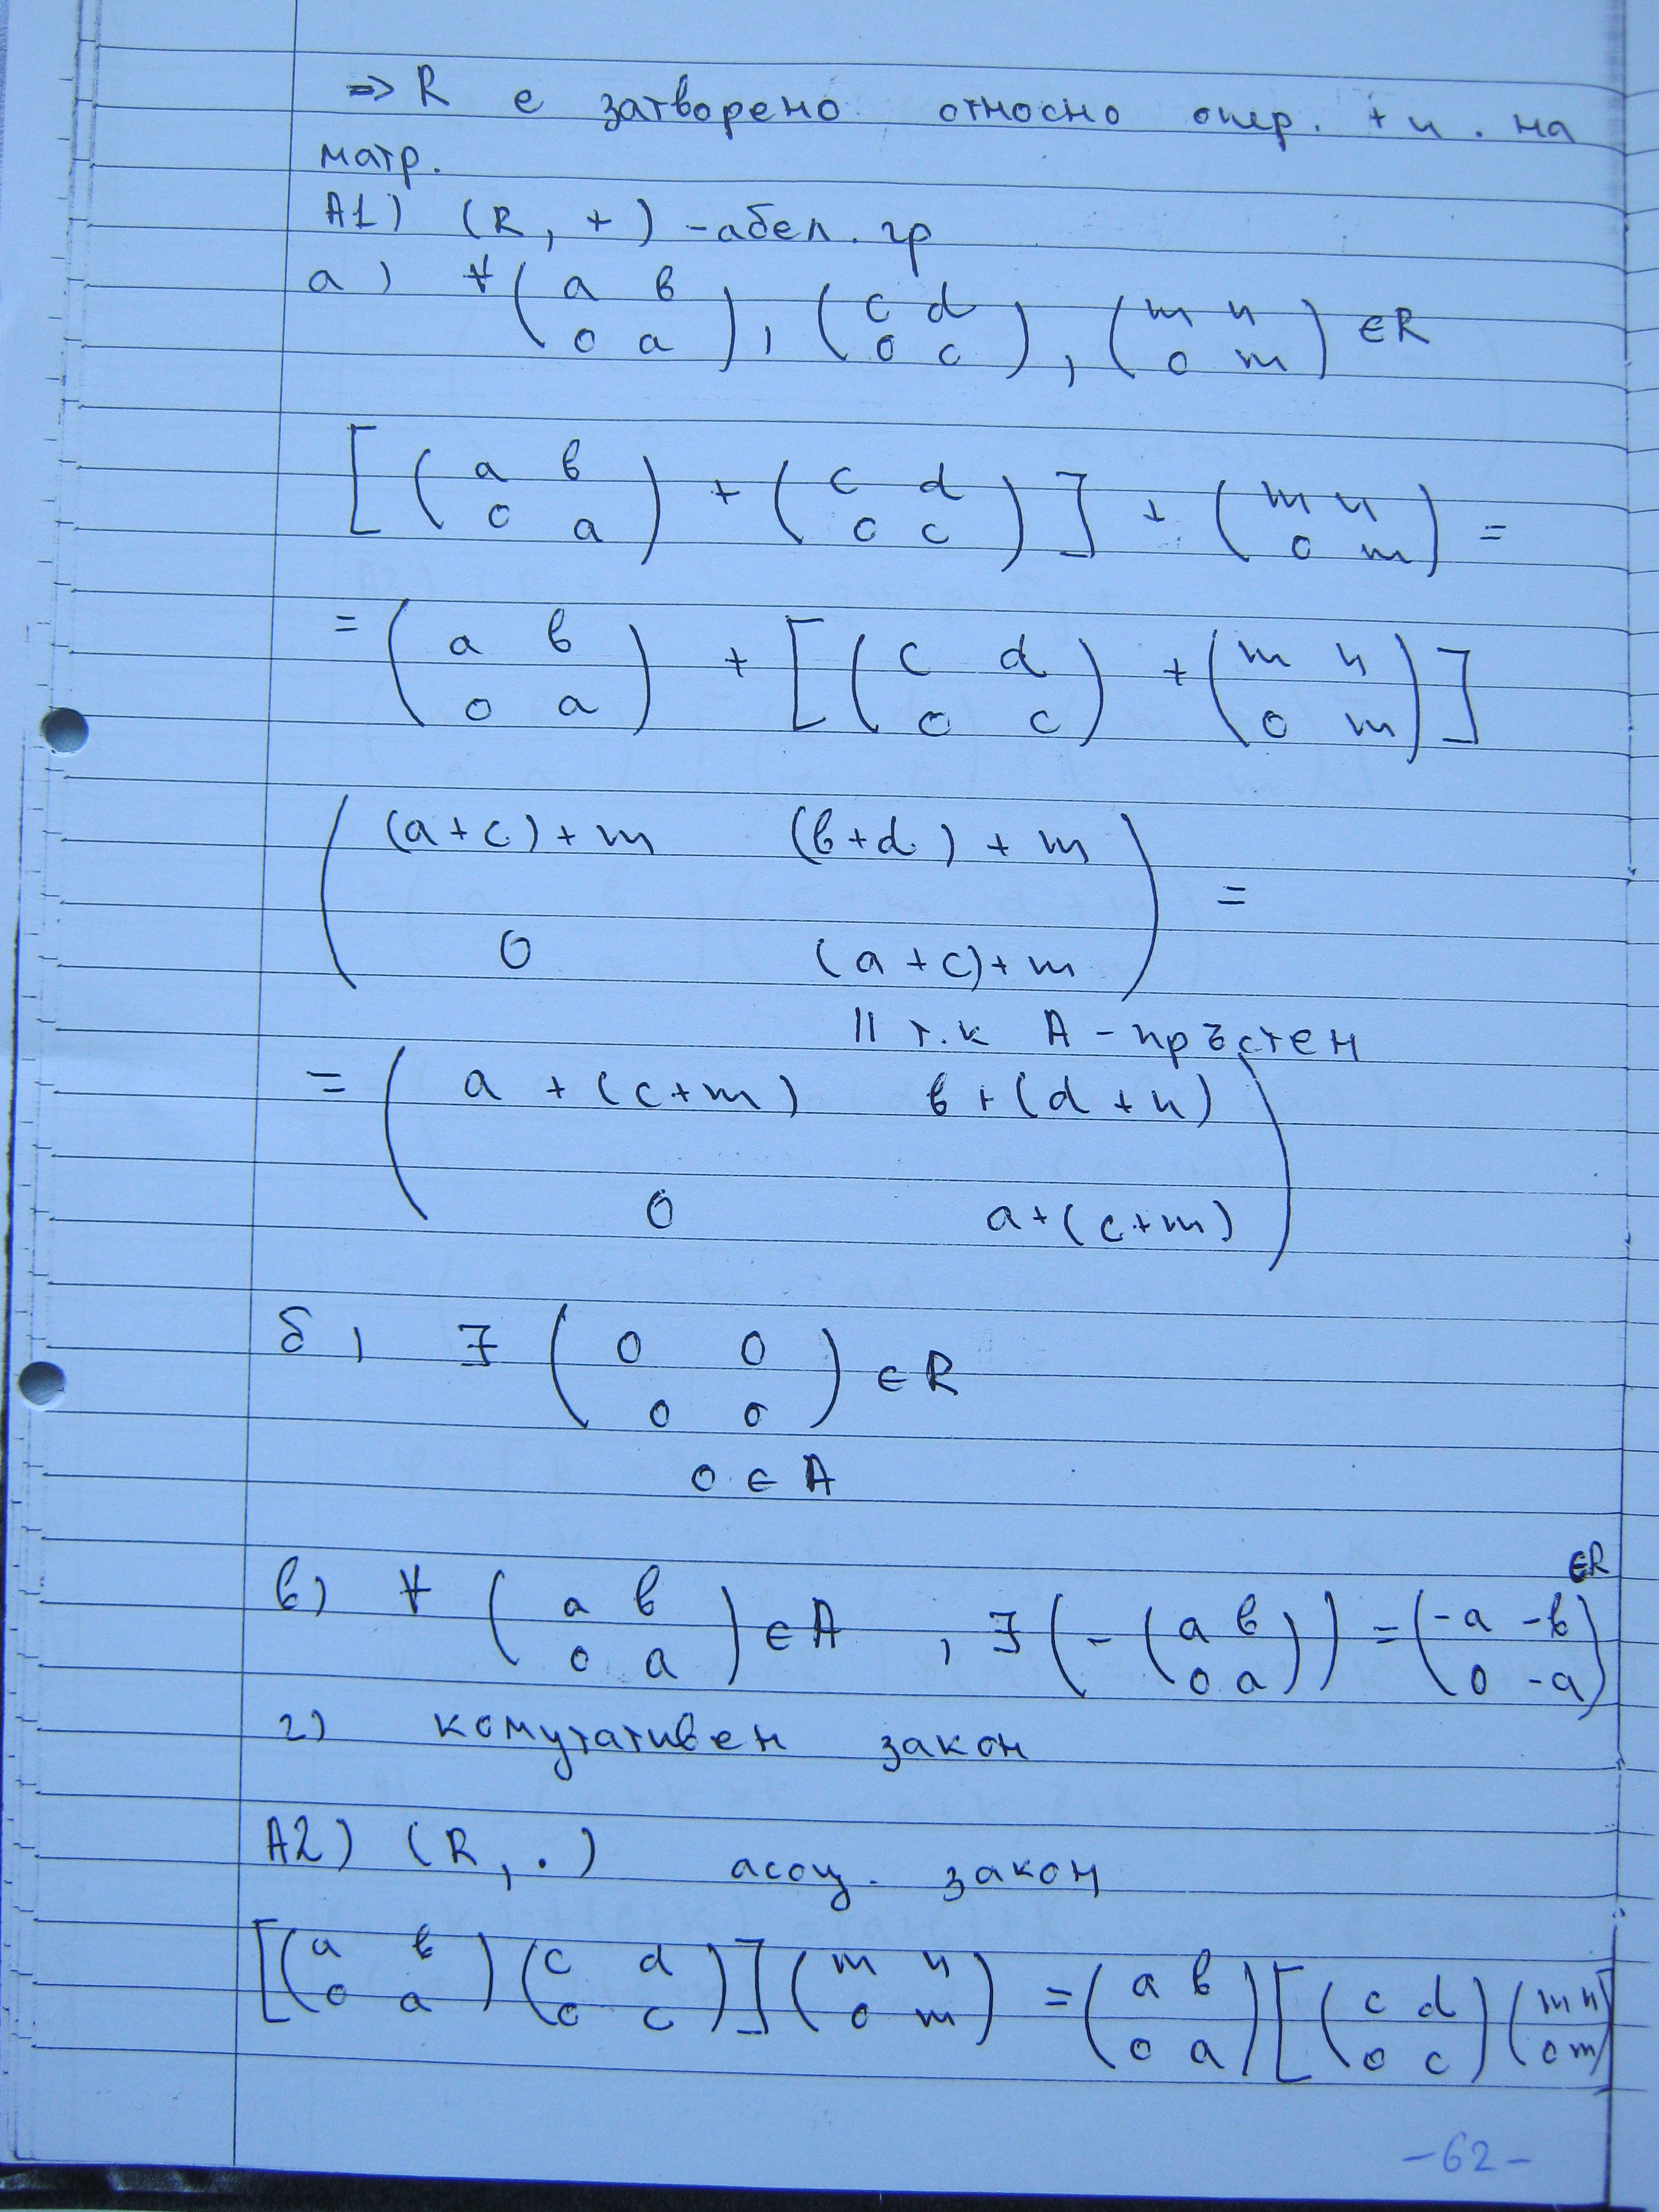 => R е затворено относно опер. + и . на
матр.
A1) (R, +) - абел. гр
а) ∀ (a в; 0 a), (c d; 0 c), (m n; 0 m) ∈R
[(a в; 0 a) + (c d; 0 c)] + (m n; 0 m) =
= (a в; 0 a) + [(c d; 0 c) + (m n; 0 m)]
((a+c)+m (в+d)+m; 0 (a+c)+m) =
|| т.к A - пръстен
= (a+(c+m) в+(d+n); 0 a+(c+m))
б) ∃ (0 0; 0 0) ∈R
0 ∈ A
в) ∀ (a в; 0 a) ∈ A , ∃ (-(a в; 0 a)) = (-a -в; 0 -a) ∈R
г) комутативен закон
A2) (R, .) асоц. закон
[(a в; 0 a)(c d; 0 c)](m n; 0 m) = (a в; 0 a)[(c d; 0 c)(m n; 0 m)]
-62-